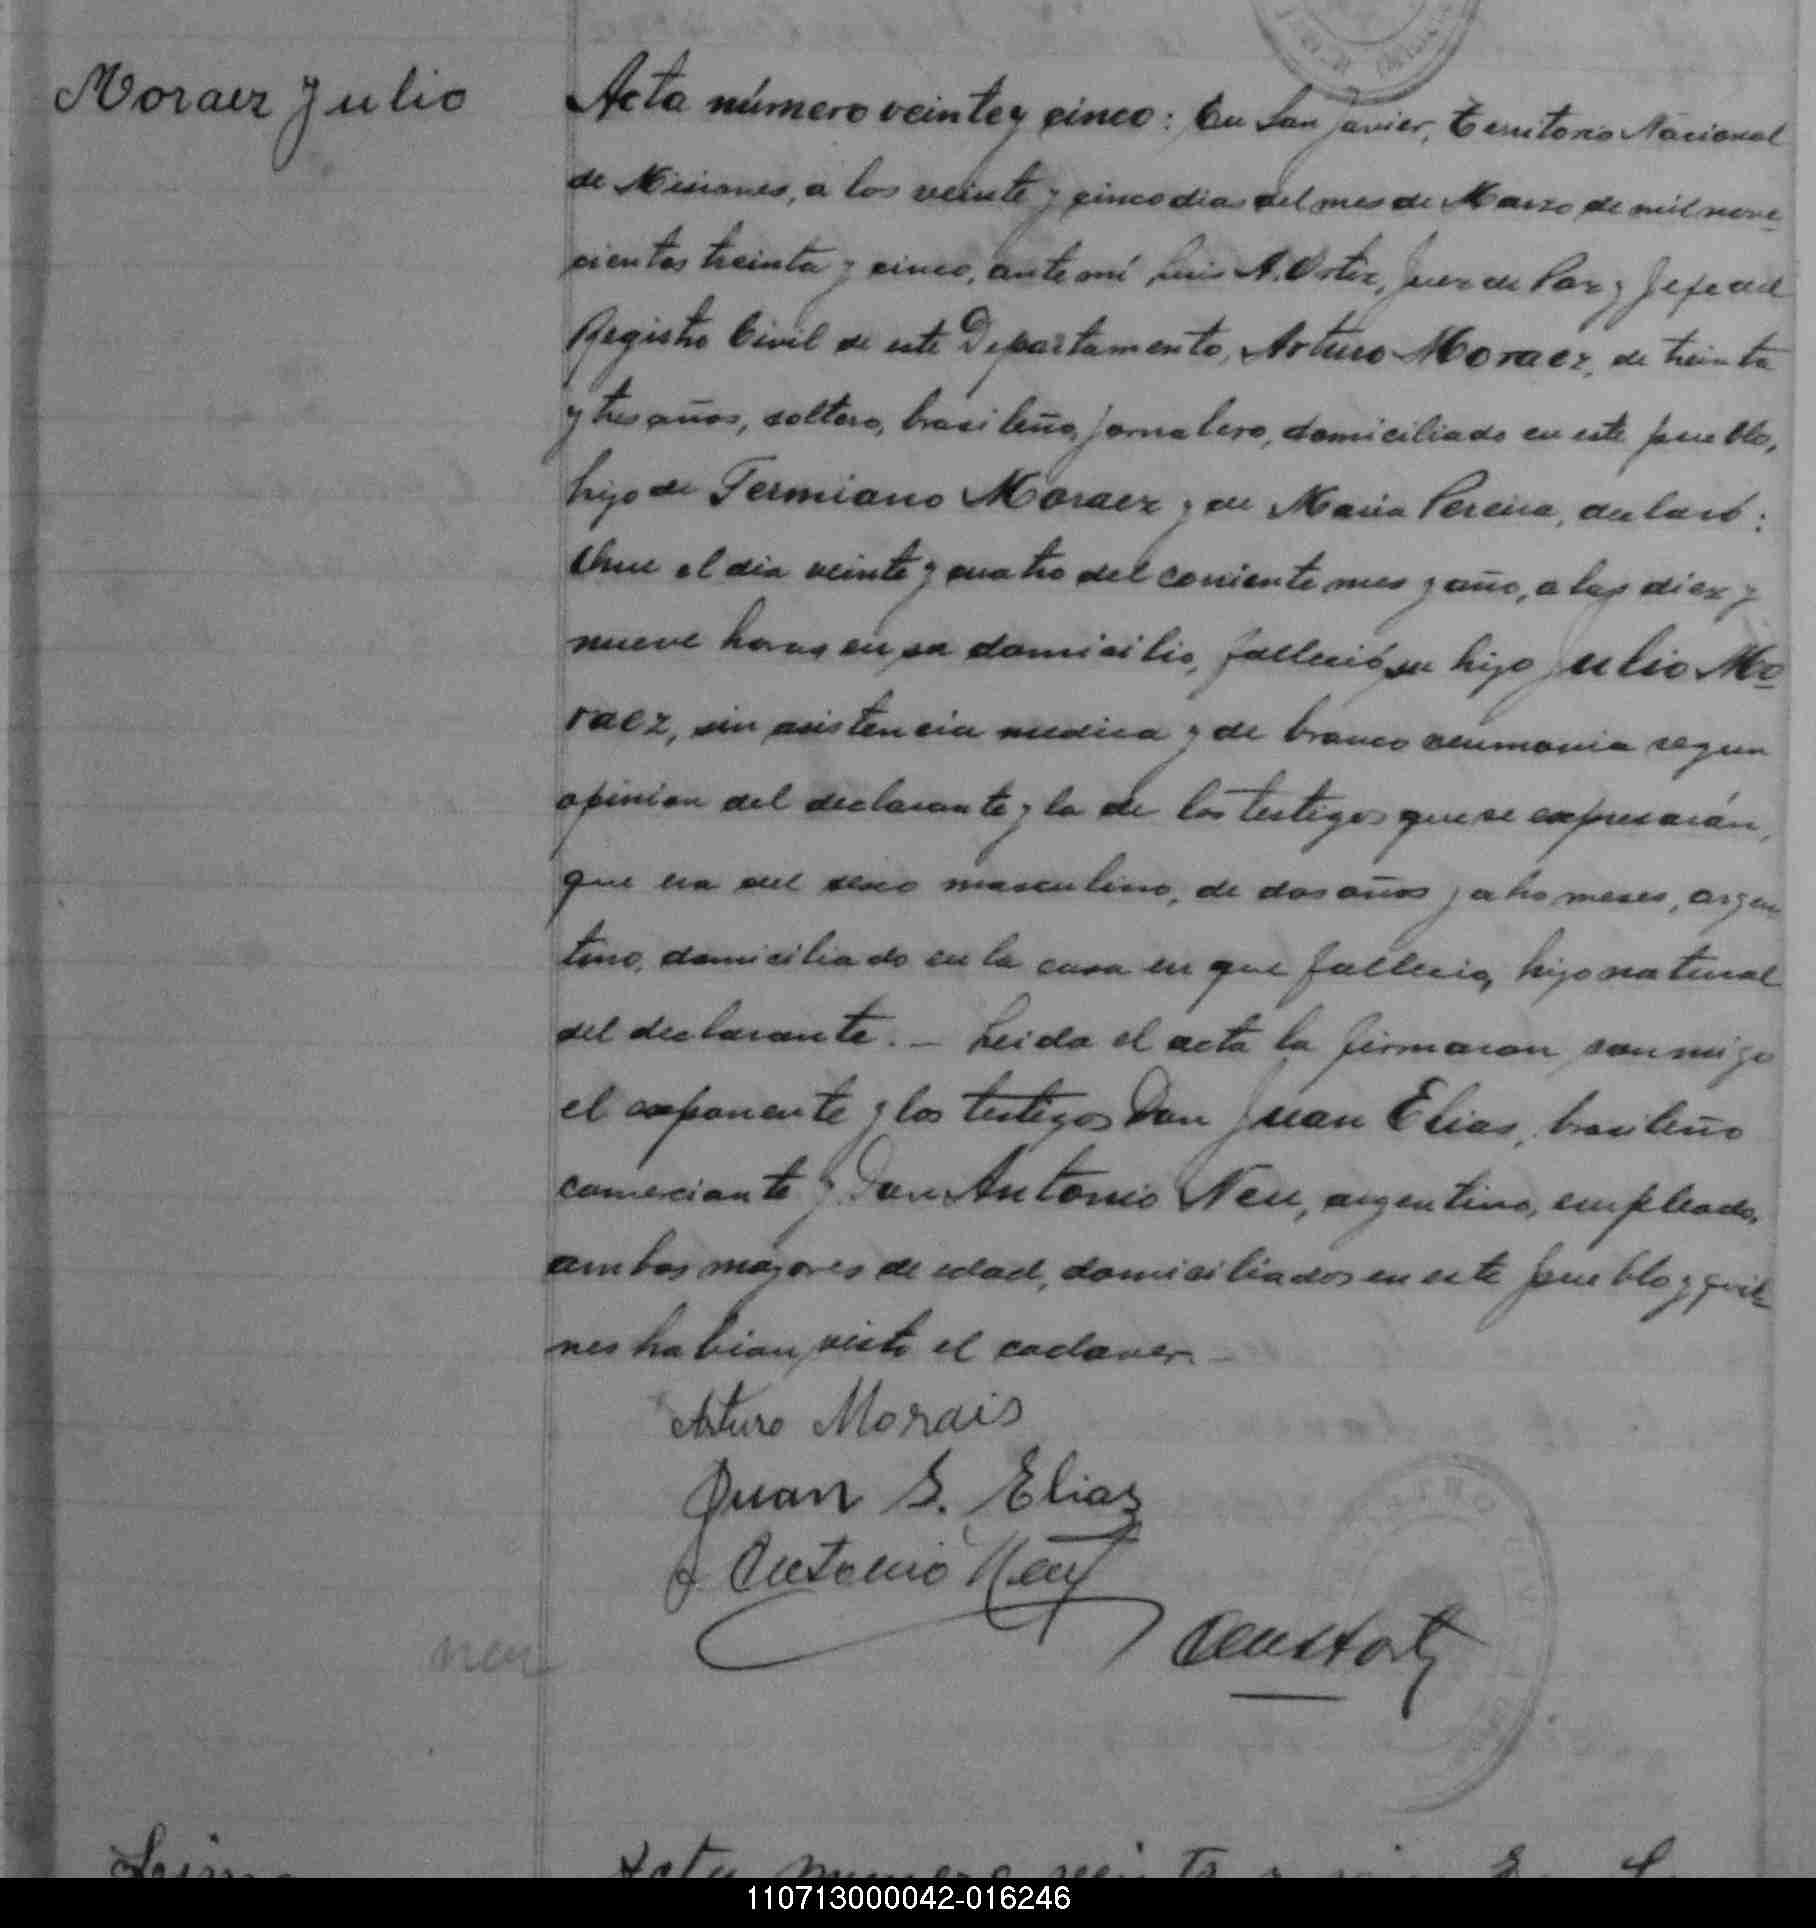 Moraez Julio
Acta número veinte y cinco: En San Javier, Territorio Nacional
de Misiones, a los veinte y cinco dias del mes de Marzo de mil nove-
cientos treinta y cinco, ante mí Luis A. Ortiz, Juez de Paz y Jefe del
Registro Civil de este Departamento, Arturo Moraez, de treinta
y tres años, soltero, brasileño, jornalero, domiciliado en este pueblo,
hijo de Fermiano Moraez y de Maria Pereira, declaró:
Que el dia veinte y cuatro del corriente mes y año, a las diez y
nueve horas en su domicilio, falleció su hijo Julio Mo-
raez, sin asistencia medica y de bronco neumonia segun
opinion del declarante y la de los testigos que se expresarán,
que era del sexo masculino, de dos años y ocho meses, argen-
tino, domiciliado en la casa en que fallecio, hijo natural
del declarante. — Leida el acta la firmaron conmigo
el exponente y los testigos Don Juan Elias, brasileño
comerciante y Don Antonio Neu, argentino, empleado,
ambos mayores de edad, domiciliados en este pueblo y quie-
nes habian visto el cadaver. —
Arturo Morais
Juan S. Elias
Antonio Neu
110713000042-016246